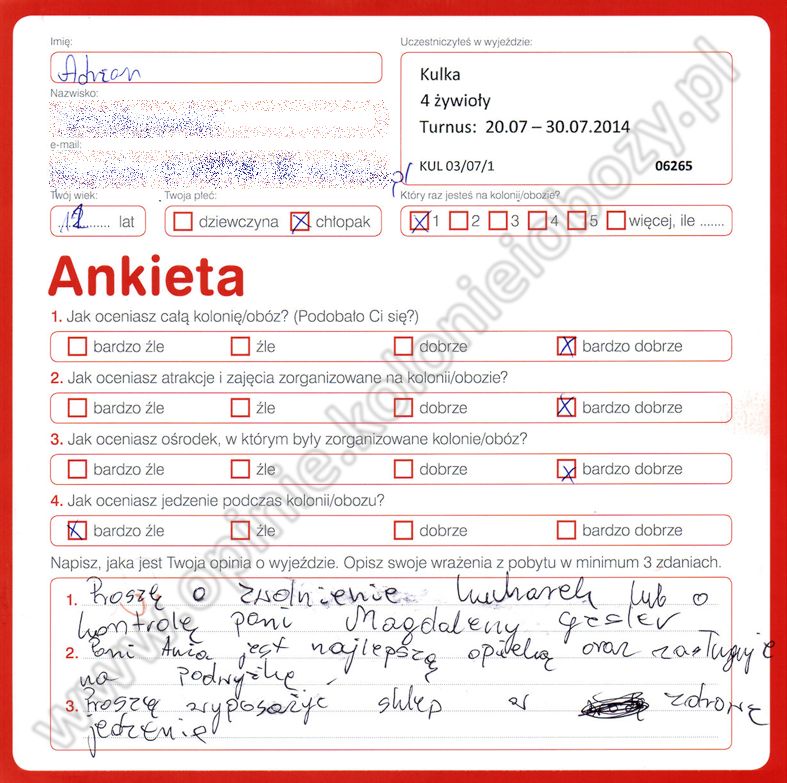 Imię:
Adrian
Uczestniczyłeś w wyjeździe:
Kulka
4 żywioły
Turnus: 20.07 – 30.07.2014
KUL 03/07/1 06265
Nazwisko:
e-mail:
pl
Twój wiek:
12 lat
Twoja płeć:
dziewczyna chłopak
Który raz jesteś na kolonii/obozie?
1 2 3 4 5 więcej, ile .......
Ankieta
1. Jak oceniasz całą kolonię/obóz? (Podobało Ci się?)
bardzo źle źle dobrze bardzo dobrze
2. Jak oceniasz atrakcje i zajęcia zorganizowane na kolonii/obozie?
bardzo źle źle dobrze bardzo dobrze
3. Jak oceniasz ośrodek, w którym były zorganizowane kolonie/obóz?
bardzo źle źle dobrze bardzo dobrze
4. Jak oceniasz jedzenie podczas kolonii/obozu?
bardzo źle źle dobrze bardzo dobrze
Napisz, jaka jest Twoja opinia o wyjeździe. Opisz swoje wrażenia z pobytu w minimum 3 zdaniach.
1. Proszę o zwolnienie kucharek lub o
kontrolę pani Magdaleny gesler
2. Pani Ania jest najlepszą opieką oraz zasługuje
na podwyżkę
3. Proszę wyposożyć sklep w zdrowę
jedzenie
www.opinie.kolonieiobozy.pl